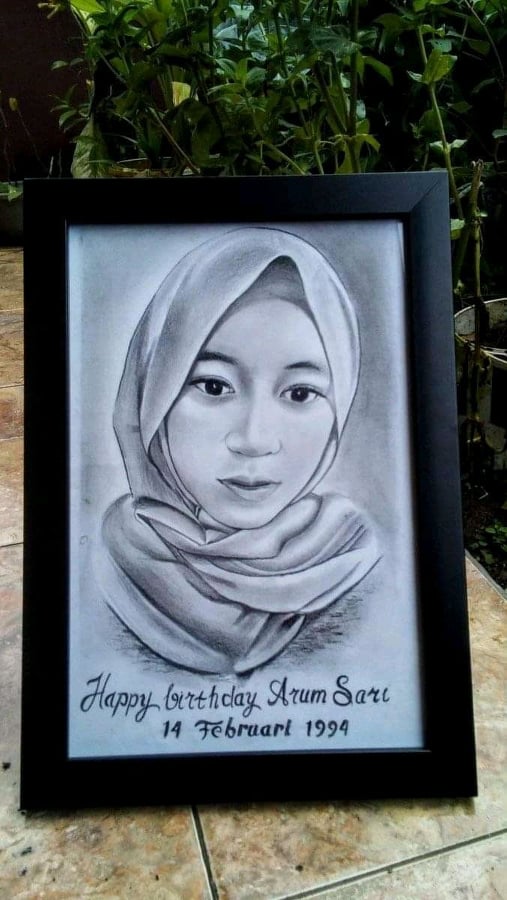 Happy birthday Arum Sari
14 Februari 1994